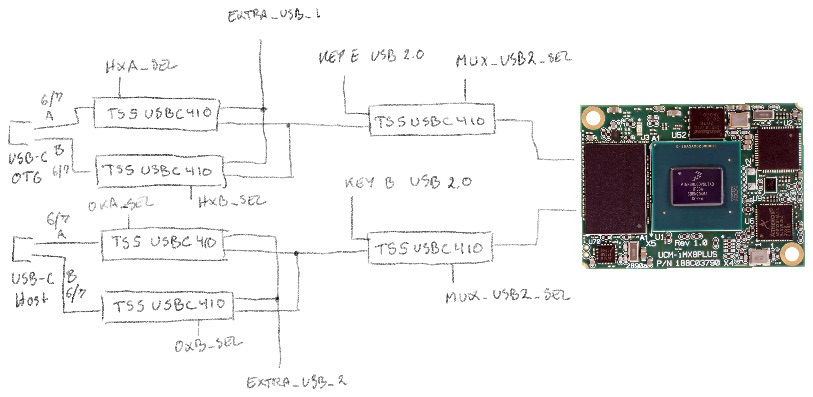 EXTRA_USB_1
HXA_SEL
KEY E USB 2.0
MUX_USB2_SEL
6/7
A
TS5USBC410
TS5USBC410
USB-C
OTG
B
6/7
TS5USBC410
HXB_SEL
KEY B USB 2.0
OXA_SEL
6/7
A
TS5USBC410
TS5USBC410
USB-C
Host
B
6/7
TS5USBC410
MUX_USB2_SEL
OXB_SEL
EXTRA_USB_2
U52
J3 A1
U2
U6
A1
U1
X5
Rev 1.0
UCM-iMX8PLUS
P/N 188C03790 X4